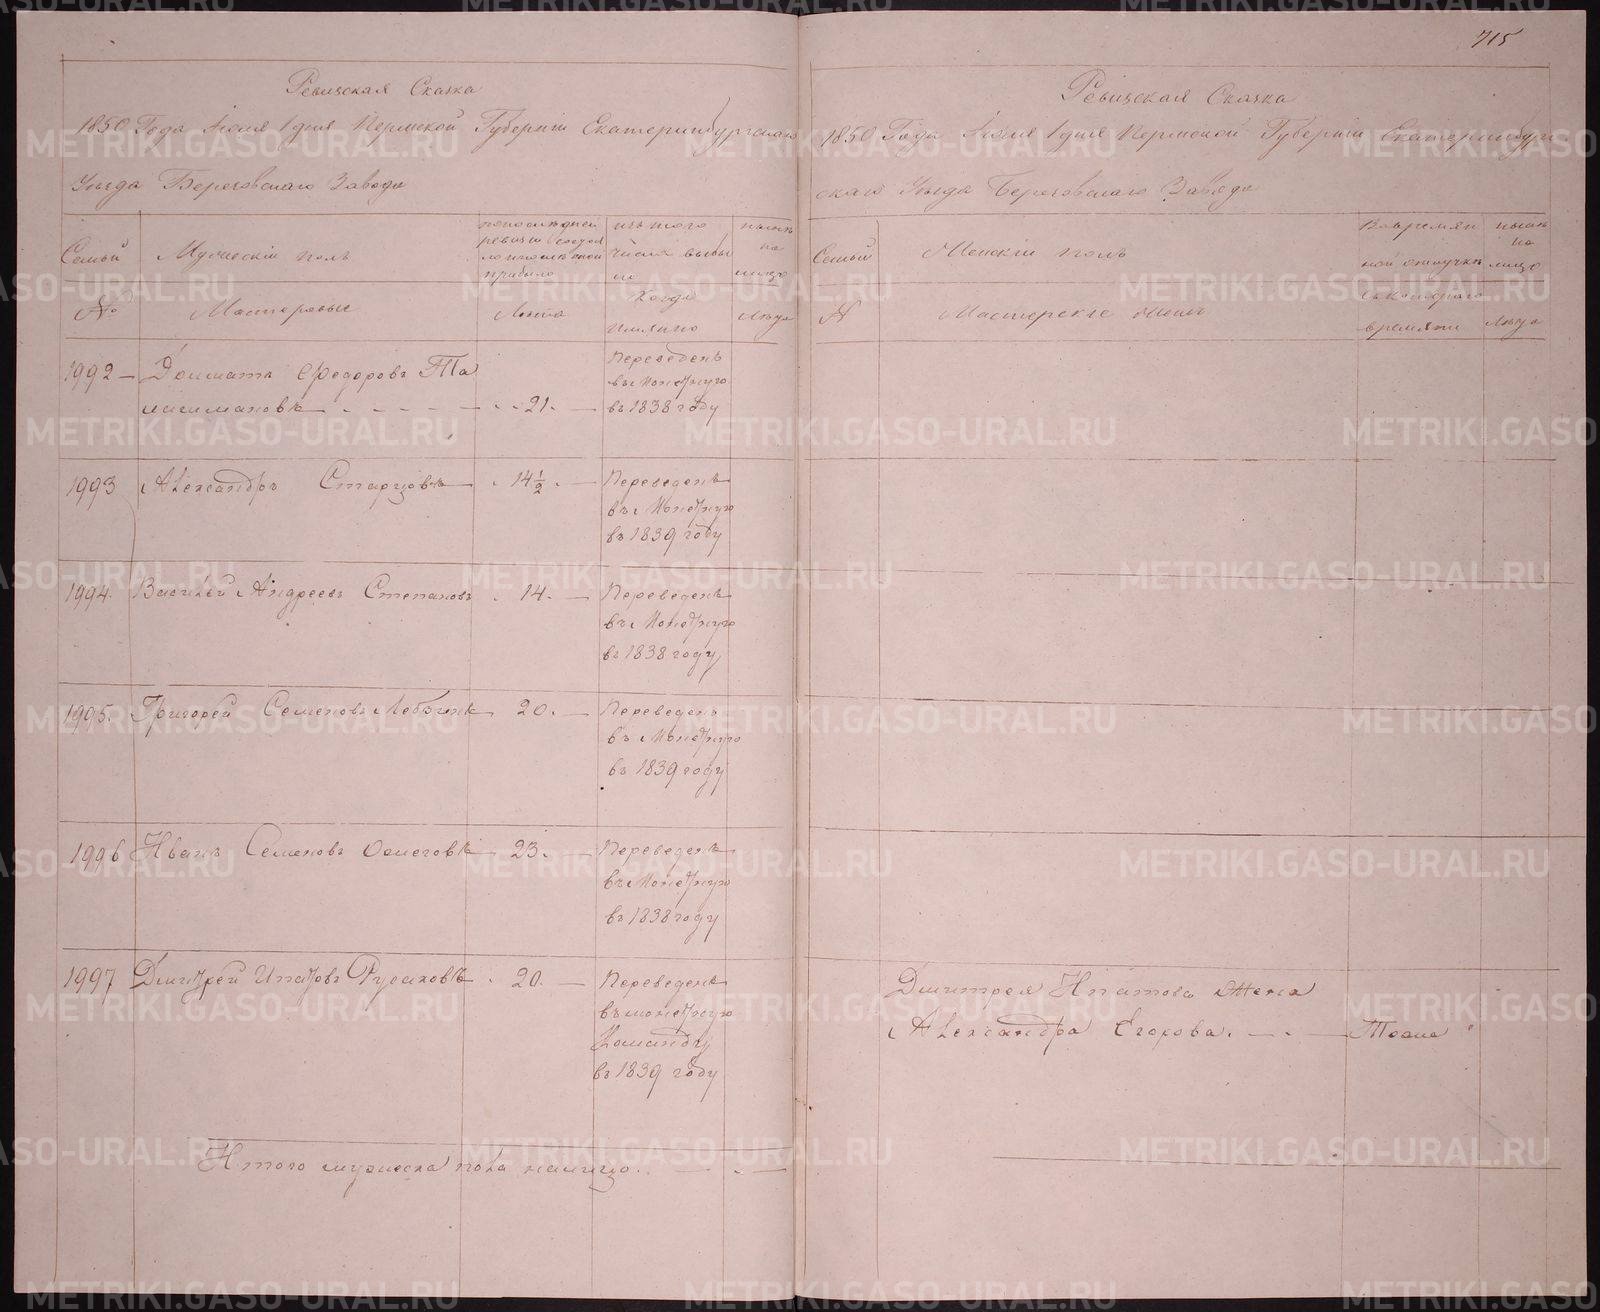 715
Ревизская Сказка
1850 Года Июля 1 дня Пермской Губернiи Екатеринбургскаго
Уезда Березовскаго Завода
Семьи
Мужескiй полъ
№
Мастеровые
Лета
изъ того
числа выбы
ло
Когда
имянно
ныне
на
лицо
Лета
1992 — Долмата Федоровъ Та
21. —
Переведенъ
въ Монетную
въ 1838 году
1993 Александръ Старцовъ — 14 1/2. —
Переведенъ
въ Монетную
въ 1839 году
1994. Василѣй Андреевъ Степановъ . 14. —
Переведенъ
въ Монетную
въ 1838 году
1995. Григорей Семеновъ 20. —
Переведенъ
въ Монетную
въ 1839 году
1996 Иванъ Семеновъ — 23. —
Переведенъ
въ Монетную
въ 1838 году
1997 Дмитрей Ипатовъ Русаковъ . 20. —
Переведенъ
въ монетную
Команду
въ 1839 году
Итого мужеска пола налицо . —
Ревизская Сказка
1850 Года Июля 1 дня Пермской Губернiи Екатеринбург
скаго Уезда Березовскаго Завода
Семьи
Женскiй полъ
Во времян
ной отлучке
ныне
на
лицо
Мастерские
съ котораго
времяни
Лета
Дмитрея Ипатова Жена
Александра Егорова. — . — Тоже
METRIKI.GASO-URAL.RU